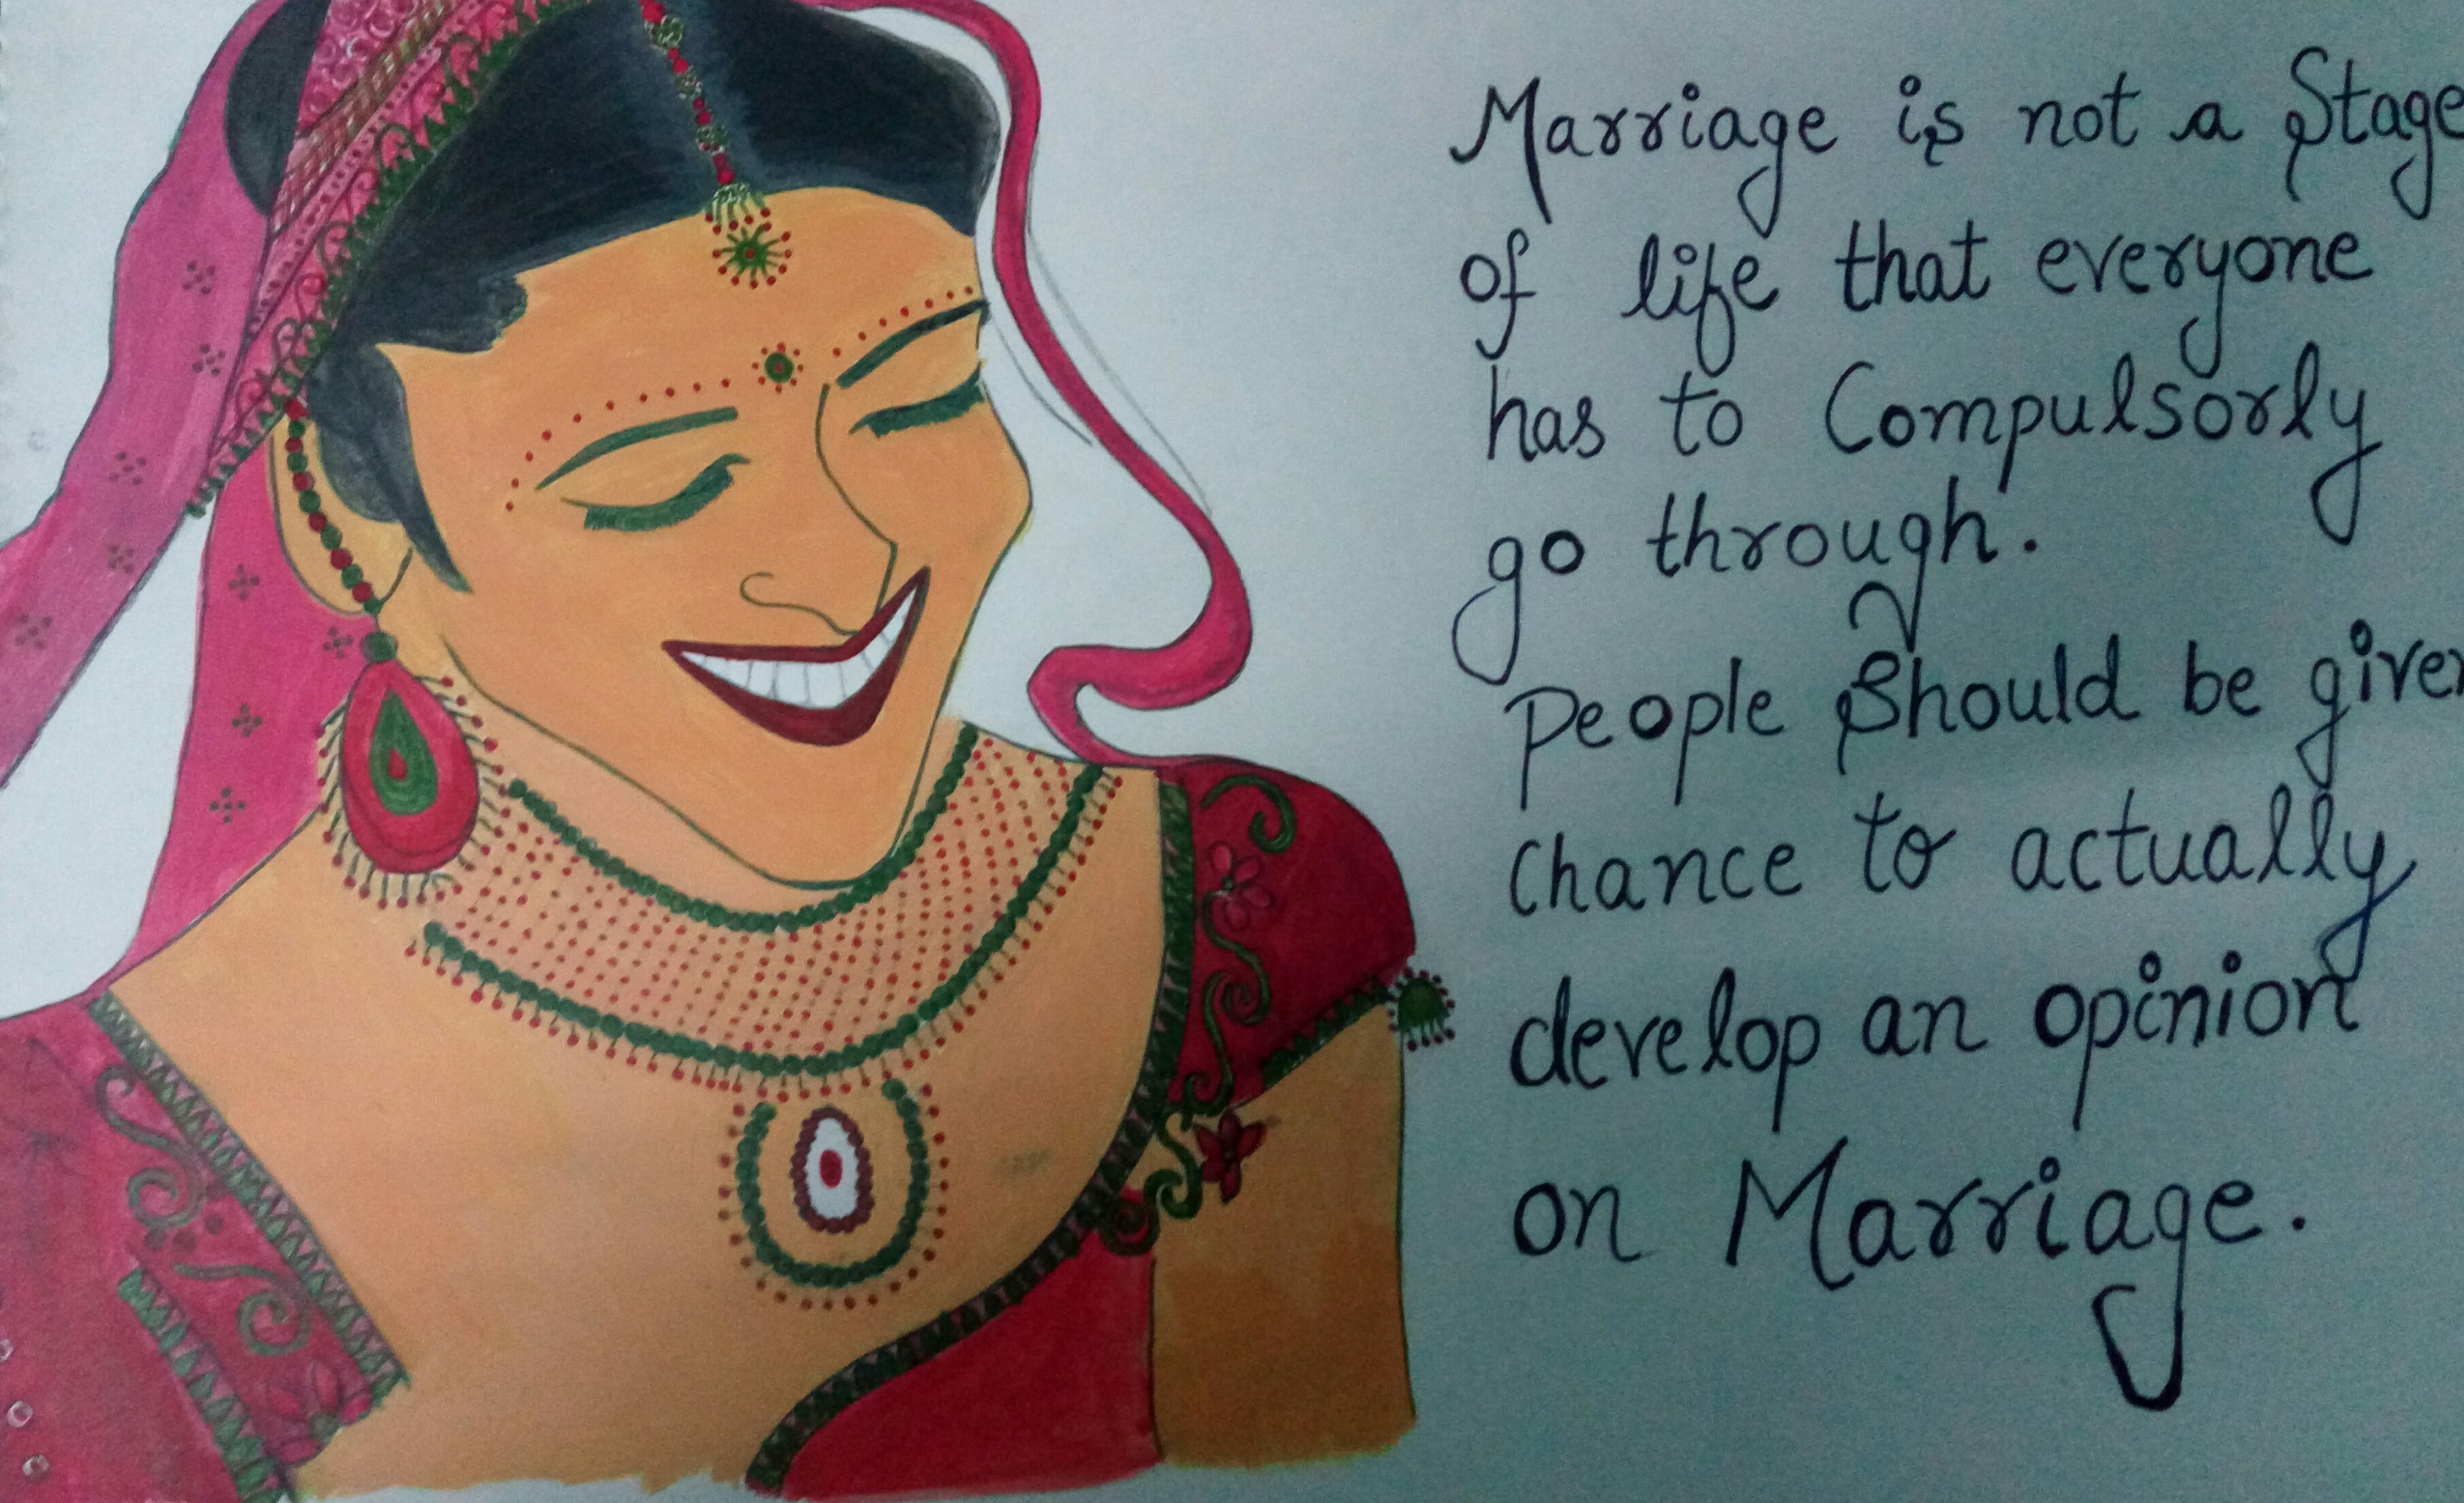 Marriage is not a Stage
of life that everyone
has to Compulsorly
go through.
People Should be given
chance to actually
develop an opinion
on Marriage.